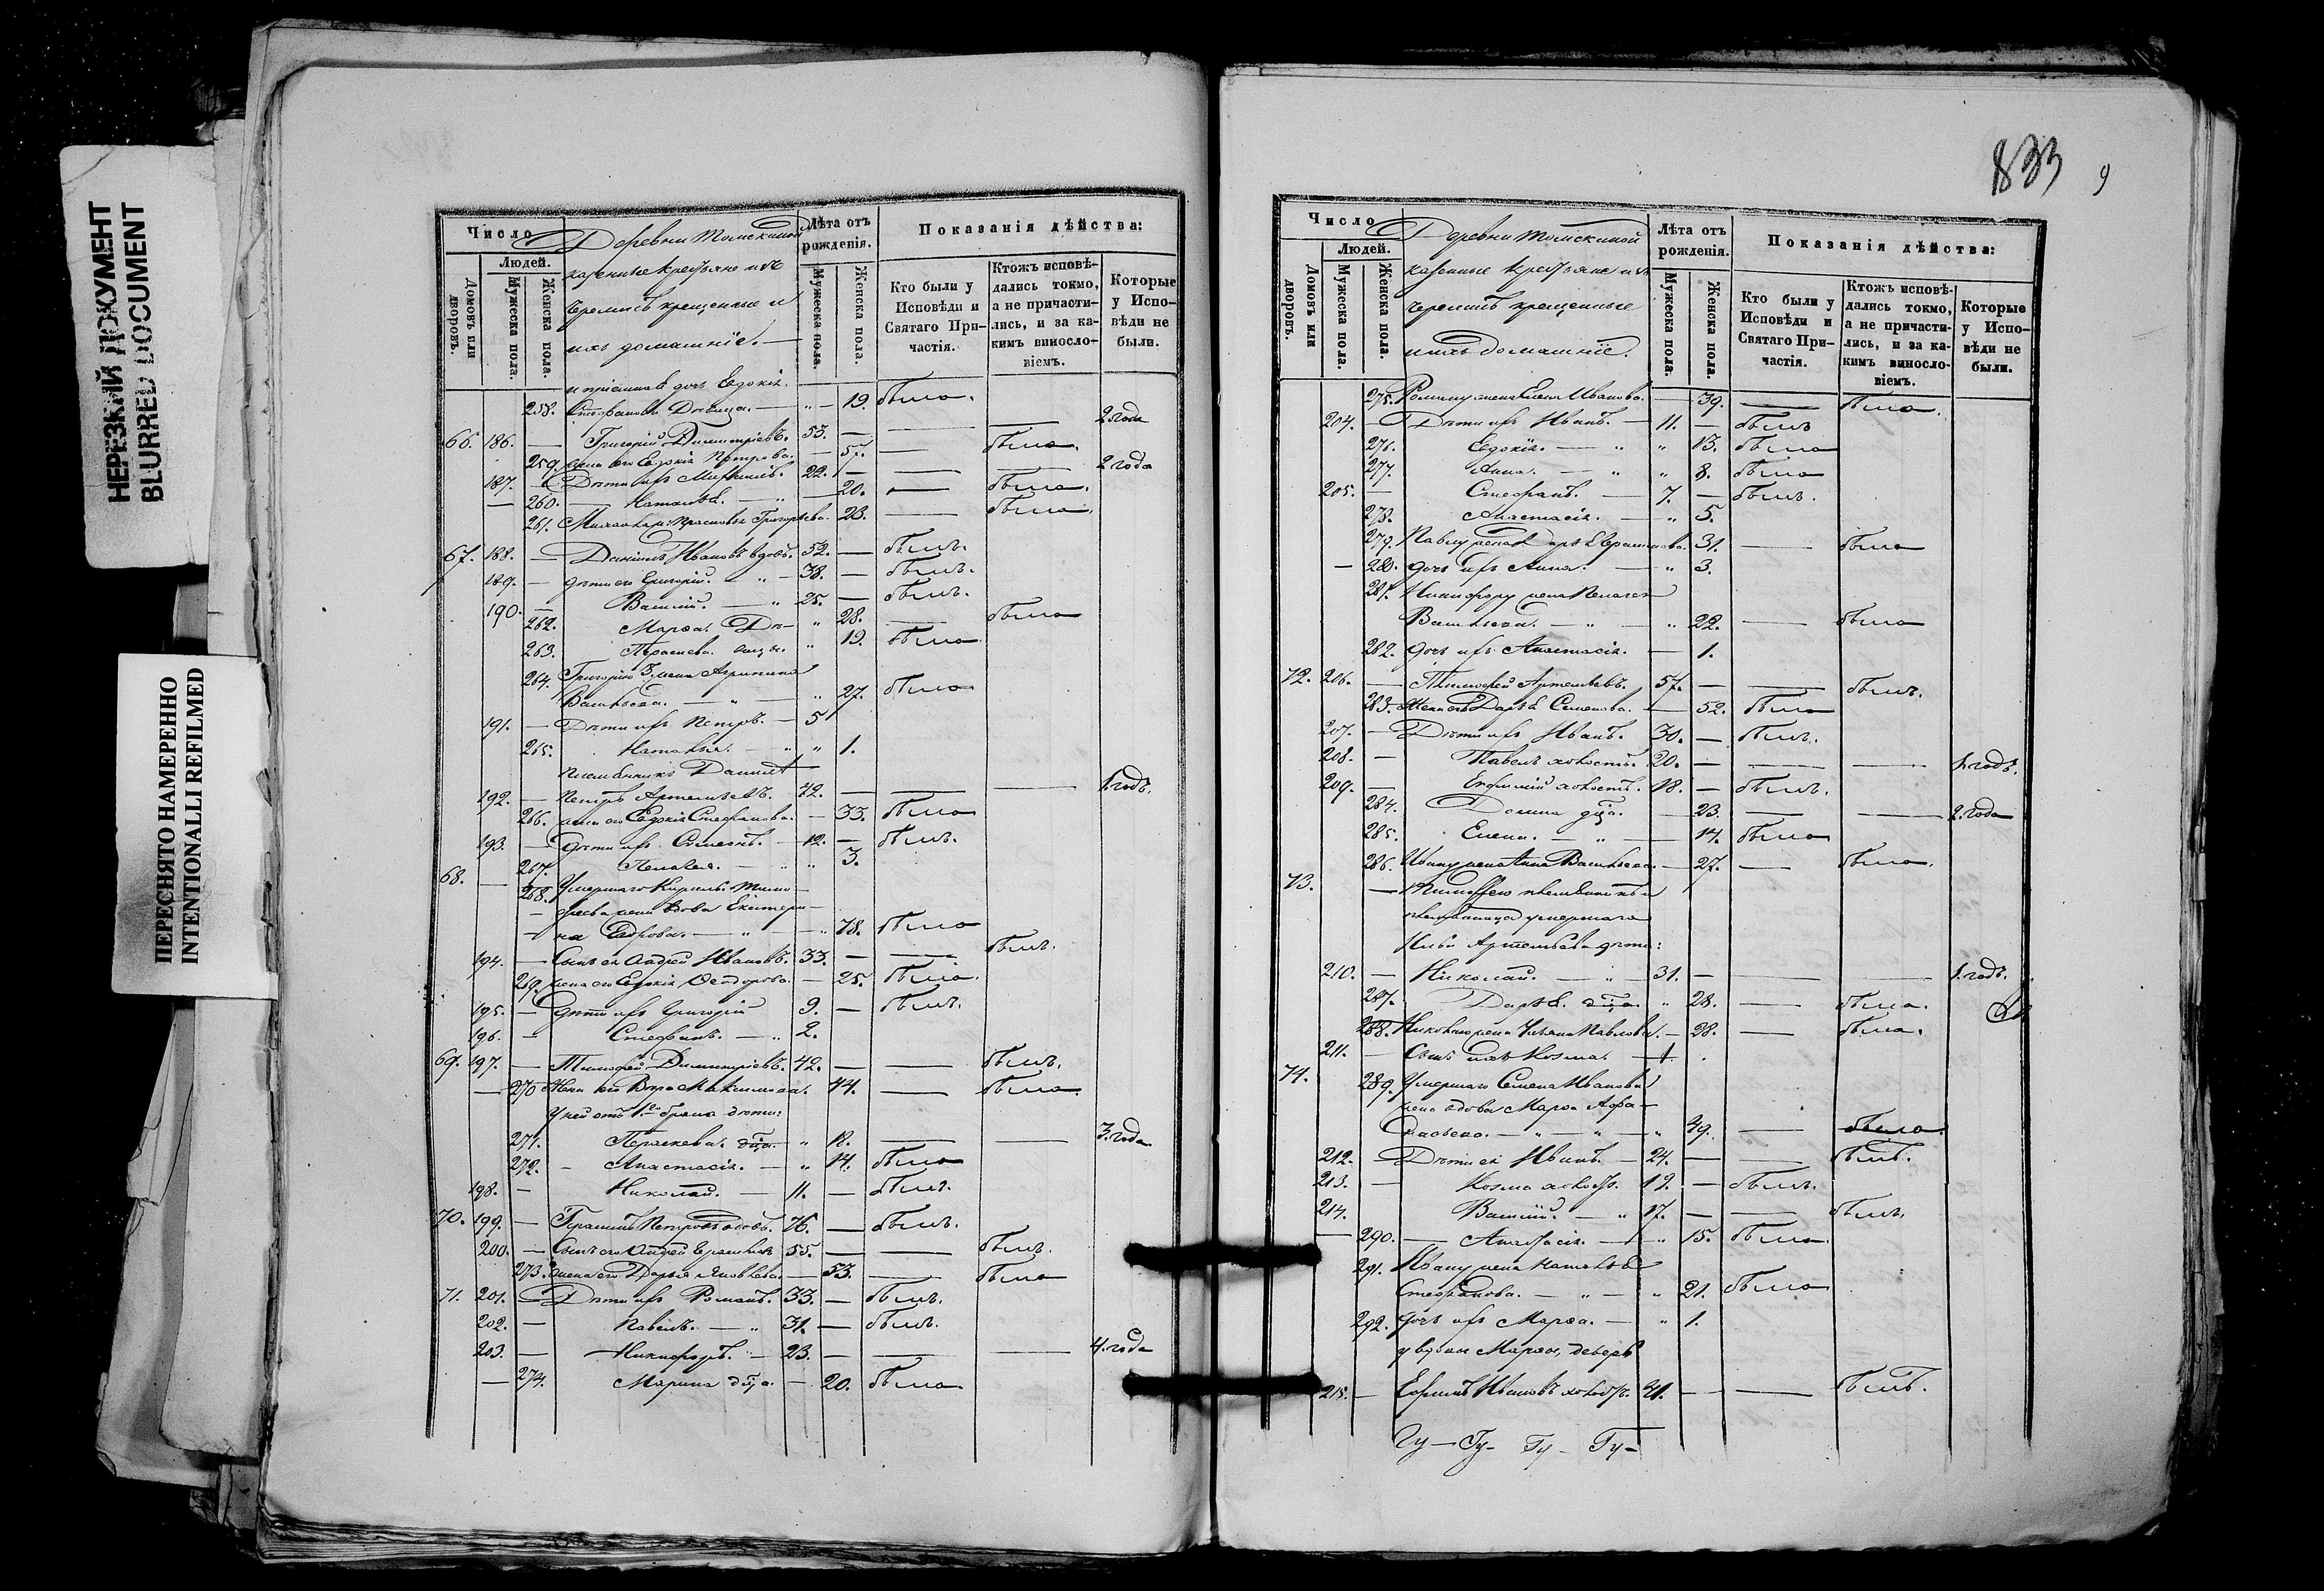 НЕРЕЗКИЙ ДОКУМЕНТ
BLURRED DOCUMENT
ПЕРЕСНЯТО НАМЕРЕННО
INTENTIONALLI REFILMED
Число
Людей.
Домовъ или дворовъ.
Мужеска пола.
Женска пола.
Деревни Томскиной
казенные крестьяне изъ
черемисъ крещенные и
ихъ домашніе.
Лѣта отъ рожденія.
Мужеска пола.
Женска пола.
Показанія дѣйства:
Кто были у Исповѣди и Святаго Причастія.
Ктожъ исповѣдались токмо, а не причастились, и за какимъ винословіемъ.
Которые у Исповѣди не были.
дочь Евдокія
258. Стефанова Дѣвица. — " — 19. была.
66. 186. — Григорій Димитріевъ. 53. — 2 года
259. жена его Евдокія Петрова. — 57. — была.
187. — Дѣти ихъ 22. — 2 года
— 260. — Наталья. — 20. — была.
261. Григорьева. 23. — была.
67. 188. — Даніилъ Ивановъ вдовъ. 52. — былъ.
189. — дѣти его Григорій. " — 38. — былъ.
190. — Василій. — " 25. — былъ.
262. Марѳа. Дѣ- " 28. — была
263. вицы. " 19. была
264. Григорію жена Агрипина
Васильева. — " — " 27. была.
191. — Дѣти ихъ Петръ. — 5
265. Наталья. — " " 1.
племянникъ Даніила
192. — Петръ Артемьевъ. 42. — 1. годъ.
266. жена его Евдокія Стефанова. — 33. была
193. — дѣти ихъ Симеонъ. — 12. — былъ.
267. Пелагея. — " " 3.
68. — 268. Умершаго Кирилы Тимо-
фѣева жена вдова Екатери-
на — " — " 78. была
194. — Сынъ ея Андрей Ивановъ. 33. — былъ.
269. жена его Евдокія Ѳеодорова. — 25. была.
195. — дѣти ихъ Григорій 9. — былъ.
196. — Стефанъ. — " 2.
69. 197. — Тимофей Димитріевъ. 42. — былъ.
— 270 Жена его Вѣра Максимова. 44. — была.
У ней отъ 1го брака дѣти:
271. Параскева. дѣвица " 18. — 3. года
272. — Анастасія. — " 14. была
198. — Николай. — 11. — былъ.
70. 199. — Петровъ вдовъ. 76. — былъ.
200. — Сынъ его Андрей 55. — былъ.
273. жена его Дарья Яковлева. — 53. — была
71. 201. — Дѣти ихъ Романъ. 33. — былъ.
202. — Павелъ. — " 31. — былъ.
203. — Никифоръ. " — 23. — 4. года
— 274. Марина дѣвица. — 20. была.
833
9
Число
Людей.
Домовъ или дворовъ.
Мужеска пола.
Женска пола.
Деревни Томскиной
казенные крестьяне изъ
черемисъ крещенные
и ихъ домашніе.
Лѣта отъ рожденія.
Мужеска пола.
Женска пола.
Показанія дѣйства:
Кто были у Исповѣди и Святаго Причастія.
Ктожъ исповѣдались токмо, а не причастились, и за какимъ винословіемъ.
Которые у Исповѣди не были.
275. Роману жена Елена Иванова. — 39. — была.
204. — Дѣти ихъ Иванъ. — 11. — былъ
276. Евдокія. — " " 13. была
277. Анна. — " " 8. была
205. — Стефанъ. — 7. — былъ.
278. Анастасія. — " 5.
279. Павлу жена Дарья 31. — была
— 280. дочь ихъ Анна. — " 3.
281. Никифору жена Пелагея
Васильева. — " — " 22. — была
282. дочь ихъ Анастасія. — 1.
72. 206. — Тимофей Артемьевъ. 57. — былъ.
283. Жена его Дарья Семенова. — 52. была
207. — Дѣти ихъ Иванъ. 30. — былъ.
208. — Павелъ холостъ. 20. — 1. годъ.
209. — Евфимій холостъ. 18. — былъ.
284. Домна дѣвица. — 23. — 2. года
285. Елена. — " — 14. была
286. Ивану жена Анна Васильева. — 27. — была.
73. — Тимоффею племянникъ и
племянница умершаго
Ильи Артемьева дѣти:
210. — Николай. — " — 31. — 1. годъ.
287. Дарья. дѣвица. " 28. — была.
288. Николаю жена Ульяна Павлова. — 28. — была.
211. — Сынъ ихъ Козма. — 1.
74. 289. Умершаго Семена Иванова
жена вдова Марѳа Аѳа-
насьева. — " — " — " 49. — была.
212. — Дѣти ея Иванъ. — 24. — былъ.
213. — Козма холостъ. 19. — былъ.
214. Василій. — " 17. — былъ.
— 290. — Анастасія. — " 15. была.
291. Ивану жена Наталья
Стефанова. — " — " 21. была
292. дочь ихъ Марѳа. — " 1.
у вдовы Марѳы, деверь
215. — Ефимъ Ивановъ холостъ. 41. — былъ.